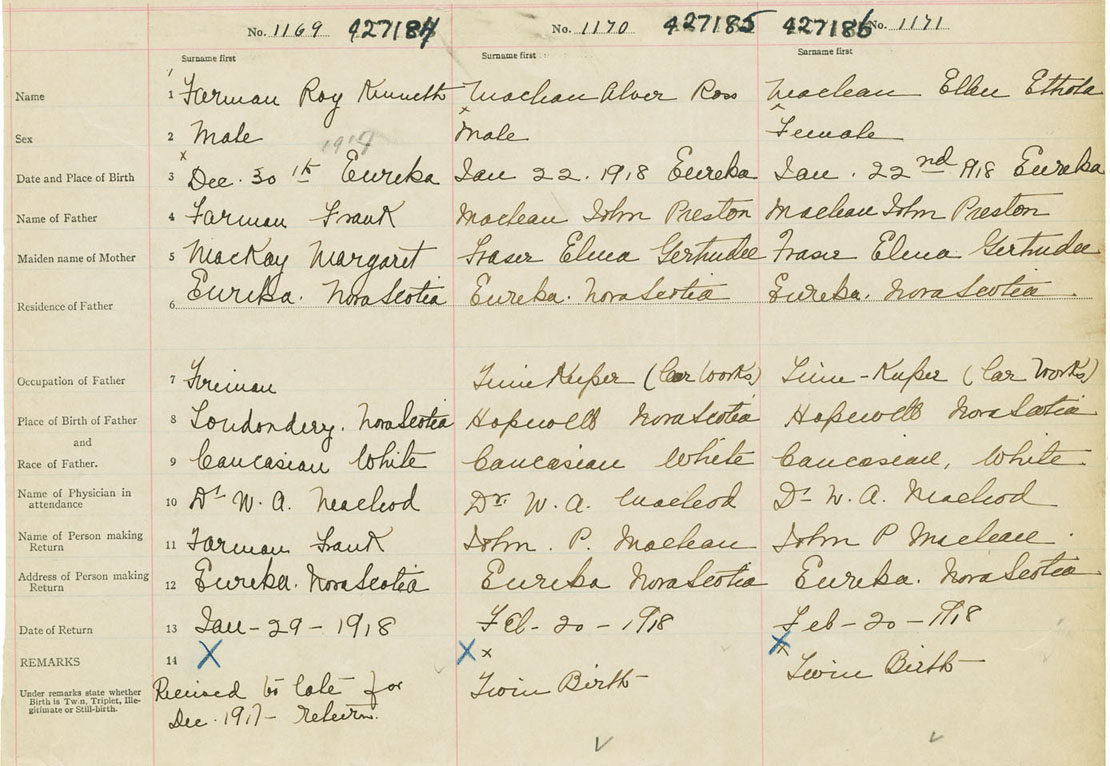 No. 1169 427184 No. 1170 427185 427186 No. 1171
Surname first Surname first Surname first
Name 1 Farman Roy Kenneth Maclean Alver Ross Maclean Ellen Ethola
Sex 2 Male 1917 Male Female
Date and Place of Birth 3 Dec. 30th Eureka Jan 22. 1918 Eureka Jan. 22nd 1918 Eureka
Name of Father 4 Farman Frank Maclean John Preston Maclean John Preston
Maiden name of Mother 5 MacKay Margaret Fraser Elma Gertrudee Fraser Elma Gertrude
Residence of Father 6 Eureka. Nova Scotia Eureka. Nova Scotia Eureka. Nova Scotia
Occupation of Father 7 Fireman Time Keeper (Car Works) Time-Keeper (Car Works)
Place of Birth of Father 8 Londondery. Nova Scotia Hopewell Nova Scotia Hopewell Nova Scotia
and
Race of Father. 9 Caucasian White Caucasian White Caucasian, White.
Name of Physician in
attendance 10 Dr W. A. Macleod Dr. W. A. Macleod Dr W. A. Macleod
Name of Person making
Return 11 Farman Frank John. P. Maclean John P Maclean.
Address of Person making
Return 12 Eureka. Nova Scotia Eureka Nova Scotia Eureka. Nova Scotia
Date of Return 13 Jan-29-1918 Feb-20-1918 Feb-20-1918
REMARKS 14 X X x X x
Under remarks state whether
Birth is Twin, Triplet, Ille-
gitimate or Still-birth.
Received to late for
Dec. 1917- return.
Twin Birth Twin Birth